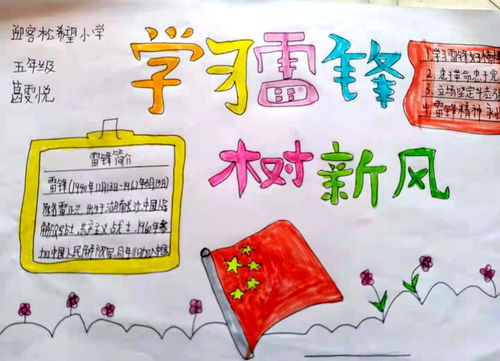 迎客松希望小学
五年级
葛雯悦
学习雷锋
树新风
1. 学习雷锋好榜样
2. 忠于革命忠于党
3. 立场坚定
4. 雷锋精神
雷锋简介
雷锋(1940年12月18日-1962年8月15日)
原名雷正兴,出生于湖南长沙,中国人民
解放军战士,共产主义战士,1960年参
加中国人民解放军,同年11月加入中国